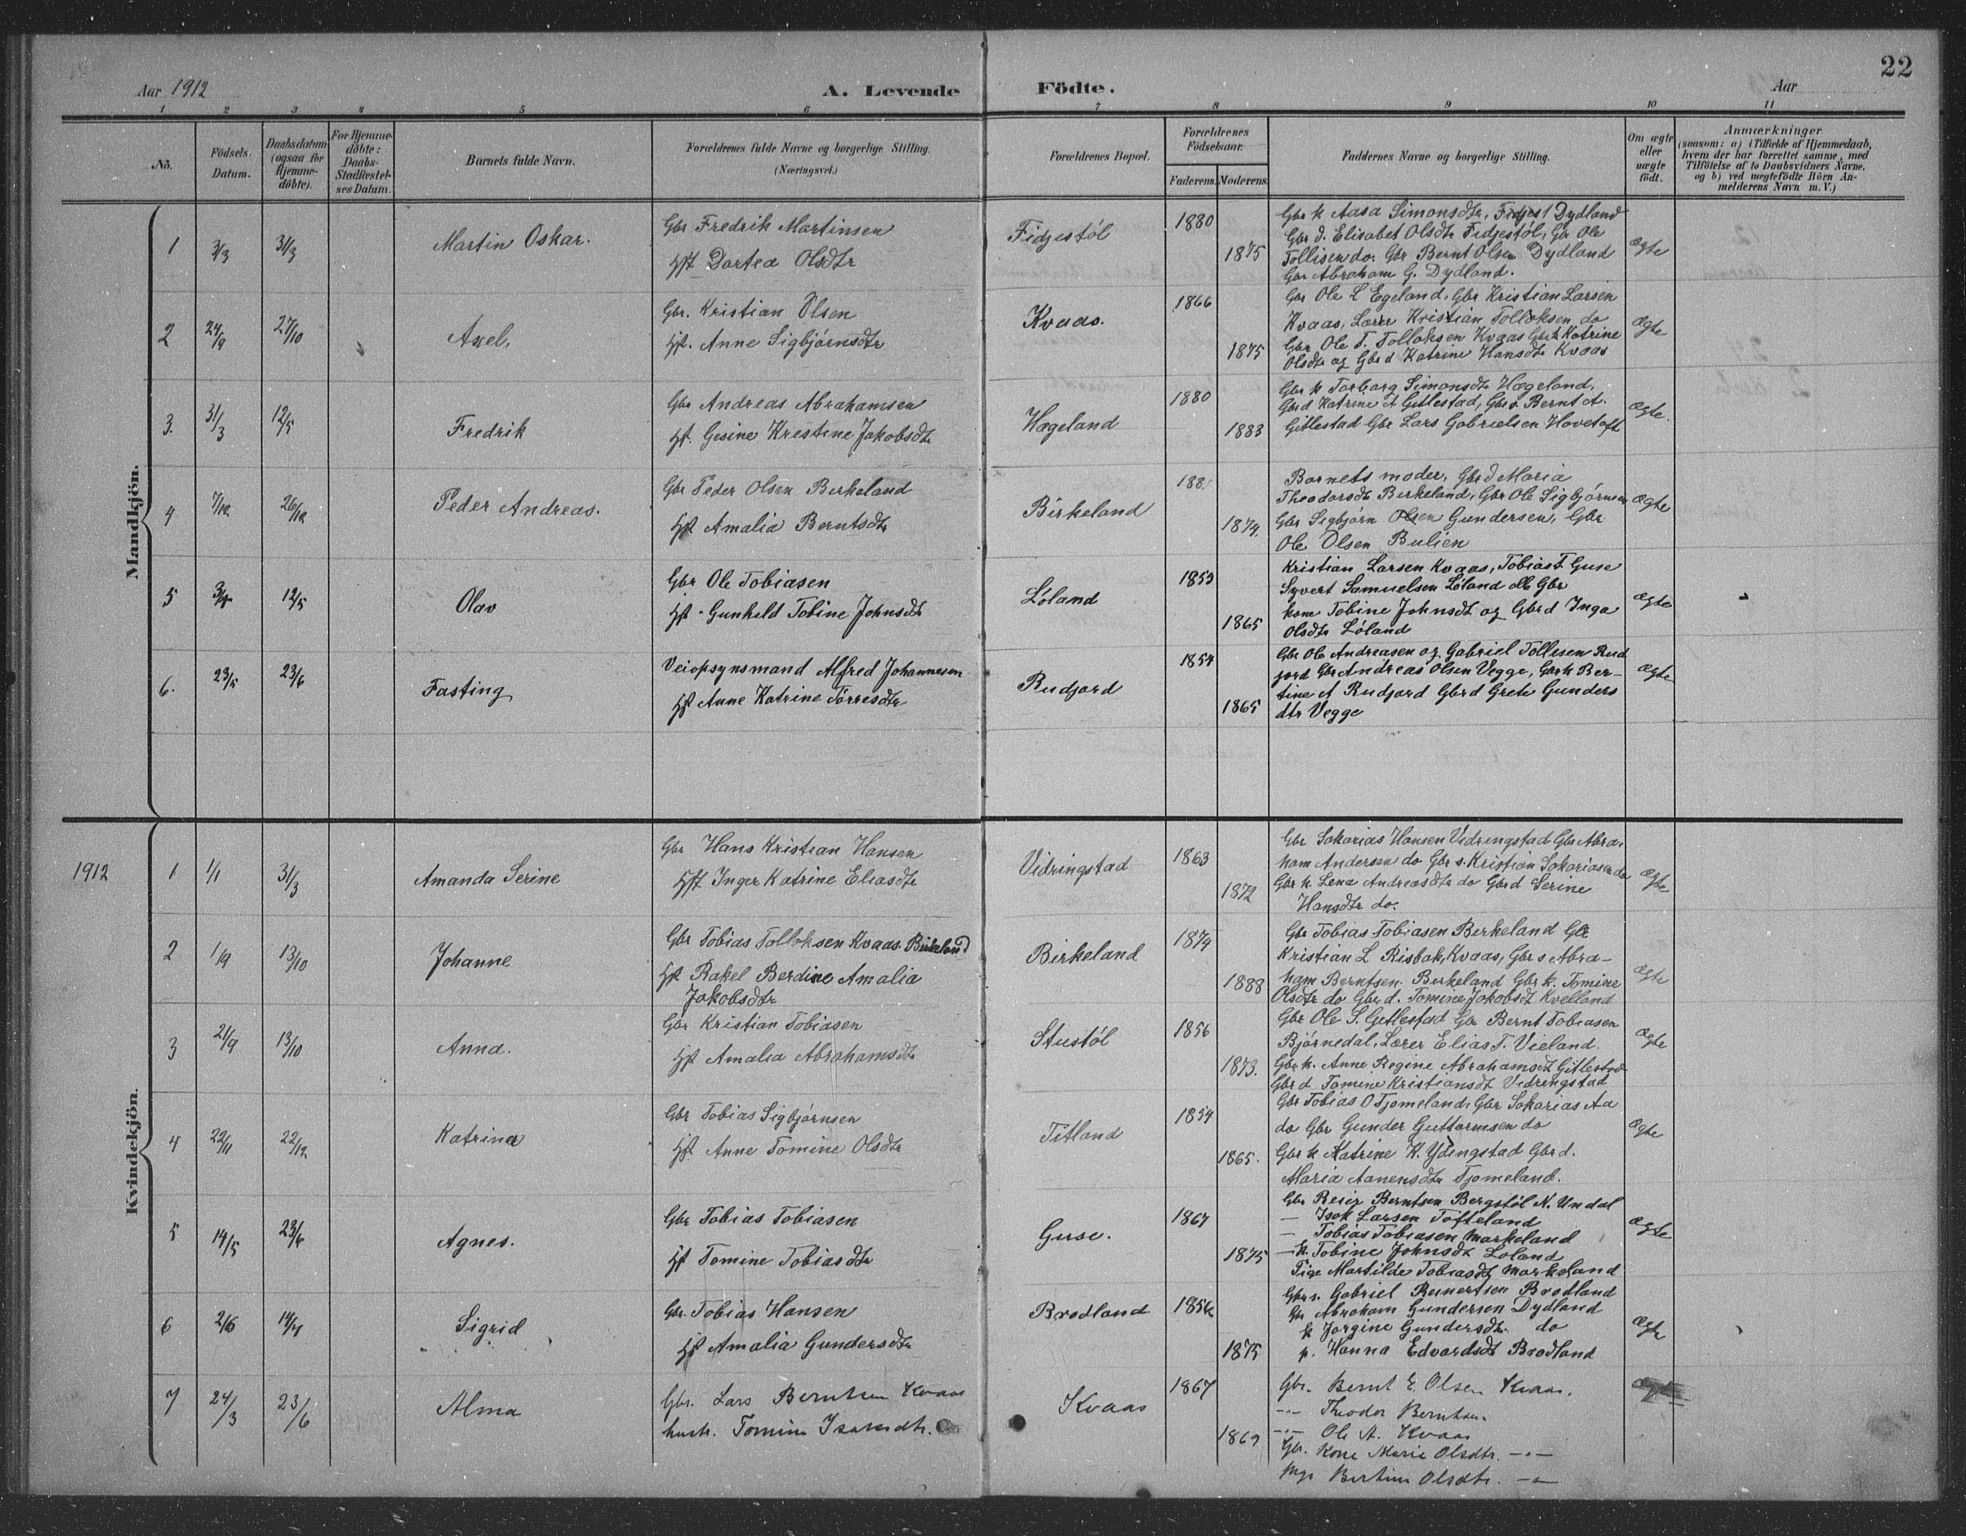 22
Aar 1912
A. Levende Födte.
Aar
1 2 3 4 5 6 7 8 9 10 11
No.
Födsels-Datum.
Daabsdatum (ogsaa for Hjemmedöbte).
For Hjemmedöbte: Daabs-Stadfæstelses Datum.
Barnets fulde Navn.
Forældrenes fulde Navne og borgerlige Stilling. (Næringsvei.)
Forældrenes Bopæl.
Forældrenes Födselsaar.
Faderens. Moderens.
Faddernes Navne og borgerlige Stilling.
Om ægte eller uægte födt.
Anmærkninger
(saasom: a) i Tilfælde af Hjemmedaab, hvem der har forrettet samme, med Tilföielse af to Daabsvidners Navne. og b) ved uægtefödte Börn Anmelderens Navn m. V.)
Mandkjön.
1 3/3 31/3 Martin Oskar.
Gbr Fredrik Martinsen
Hst Dortea Olsdtr
Fidjestöl
1880
1875
Gbr k Aasa Simonsdtr, Fidjest Dydland
Gbr d. Elisabet Olsdtr Fidjestöl, Gbr Ole
Tollisen do. Gbr Bernt Olsen Dydland
Gbr Abraham G. Dydland.
ægte
2 24/9 27/10 Axel.
Gbr. Kristian Olsen
Hst. Anne Sigbjörnsdtr
Kvaas.
1866
1875
Gbr Ole L Egeland, Gbr Kristian Larsen
Kvaas, Lærer Kristian Tolloksen do
Gbr Ole T. Tolloksen Kvaas Gbr k Katrine
Olsdtr og Gbr d Katrine Hansdtr Kvaas
ægte
3. 31/3 12/5 Fredrik
Gbr Andreas Abrahamsen
Hst. Gesine Krestine Jakobsdtr
Hægeland
1880
1883
Gbr k Torborg Simonsdtr Hægeland,
Gbr d Katrine A Gitlestad, Gbr s. Bernt A.
Gitlestad Gbr Lars Gabrielsen Hovetoft
ægte.
4 7/12 26/12 Peder Andreas.
Gbr Peder Olsen Birkeland
Hst Amalia Berntsdtr
Birkeland
188
1874.
Barnets moder, Gbr d Maria
Theodorsdtr Birkeland, Gbr Ole Sigbjörnsen
Gbr Sigbjörn Olsen Gundersen, Gbr
Ole Olsen Bulien
ægte
5 12/5 Olav
Gbr Ole Tobiasen
Hst. Gunheld Tobine Johnsdtr
Löland
1853
1865
Kristian Larsen Kvaas, Tobias T Guse
Syvert Samuelsen Löland alle Gbr
kone Tobine Johnsdtr og Gbr d Inga
Olsdtr Löland
ægte
6. 23/5 23/6 Fasting
Veiopsynsmand Alfred Johannesen
Hst Anne Katrine Törresdtr
Rudjord
1854
1865
Gbr Ole Andreasen og Gabriel Tollisen Rud
jord Gbr Andreas Olsen Vegge, Gbr k Ber-
tine A Rudjord Gbr d Grete Gunders
dtr Vegge
ægte
Kvindekjön.
1912
1 1/1 31/3 Amanda Serine
Gbr Hans Kristian Hansen
Hst Inger Katrine Eliasdtr
Vidringstad
1863
1872
Gbr Sakarias Hansen Vidringstad Gbr Abra-
ham Andersen do Gbr s. Kristian Sakariasen do
Gbr k. Lena Andreasdtr do Gbr d Serine
Hansdtr do.
ægte
2 1/9 13/10 Johanne
Gbr Tobias Tolloksen Kvaas. Birkeland
Hst Rakel Berdine Amalia
Jakobsdtr
Birkeland
1874
1888
Gbr Tobias Tobiasen Birkeland Gbr
Kristian L Risbak, Kvaas, Gbr s Abra-
ham Berntsen Birkeland Gbr k. Tomine
Olsdtr do Gbr d. Tomine Jakobsdt Kvelland
ægte
3 21/9 13/10 Anna.
Gbr Kristian Tobiasen
Hst Amalia Abrahamsdtr
Stustöl
1856
1873.
Gbr Ole S. Gitlestad Gbr Bernt Tobiasen
Björnedal, Lærer Elias T. Vieland.
Gbr k. Anne Regine Abrahamsdt Gitlestad
Gbr d Tomine Kristiansdt Vidringstad
ægte
4 22/11 22/12 Katrina
Gbr Tobias Sigbjörnsen
Hst. Anne Tomine Olsdtr
Titland
1854
1865.
Gbr Tobias O Tjomeland, Gbr Sakarias Aa
do Gbr Gunder Guttormsen do
Gbr k Katrine K. Ydingstad Gbr d.
Maria Aanensdtr Tjomeland.
ægte
5 14/5 23/6 Agnes.
Gbr Tobias Tobiasen
Hst Tomine Tobiasdtr
Guse.
1867
1875
Gbr Reier Berntsen Bergstöl N. Undal
— Isak Larsen Tofteland
— Tobias Tobiasen Markeland
— k. Tobine Johnsdt Löland
Pige Martilde Tobiasdt Markeland
ægte
6 2/6 14/7 Sigrid
Gbr. Tobias Hansen
Hst Amalia Gundersdtr
Brodland
1856
1875
Gbr s. Gabriel Reinertsen Brodland
Gbr Abraham Gundersen Dydland
k Jorgine Gundersdtr. do
p. Hanna Edvardsdt Brodland
ægte
7 24/3 23/6 Alma
Gbr. Lars Berntsen Kvaas
hustr. Tomine Isaksdtr.
Kvaas
1867
1869
Gbr. Bernt E. Olsen Kvaas.
-"- Theodor Berntsen.
-"- Ole A. Kvaas
Gbr. Kone Marie Olsdtr. -"-
Pige Bertine Olsdtr. -"-
ægte